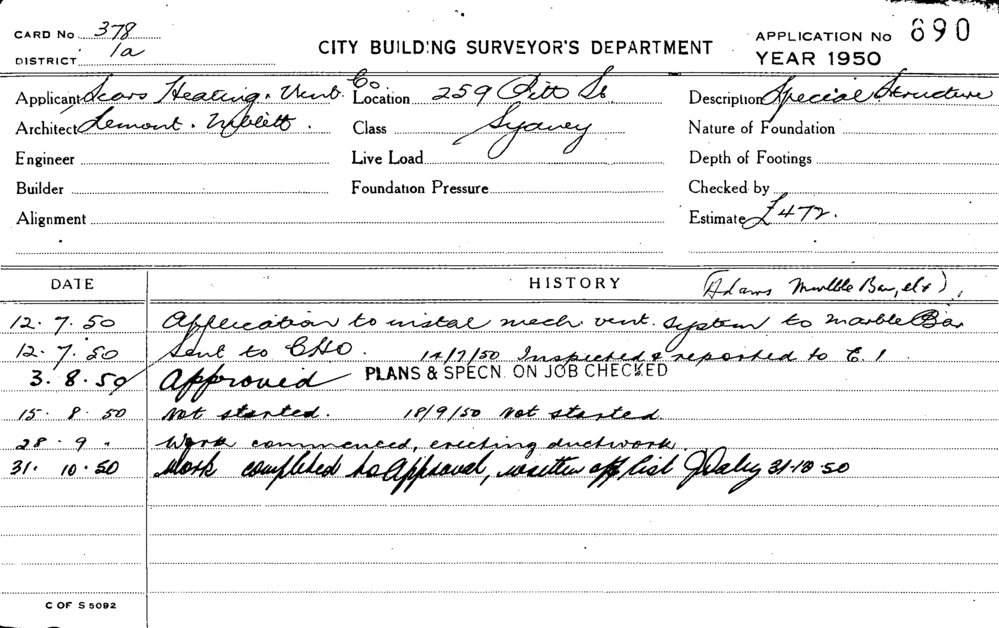 CARD No 378
DISTRICT 1a
CITY BUILDING SURVEYOR'S DEPARTMENT
APPLICATION No 690
YEAR 1950
Applicant Sears Heating & Vent. Co
Location 259 Pitt St.
Description Special Structure
Architect Lemont.
Class Sydney
Nature of Foundation
Engineer
Live Load
Depth of Footings
Builder
Foundation Pressure
Checked by
Alignment
Estimate £472.
DATE
HISTORY
(Adams Marble Bar,
12. 7. 50 Application to instal mech vent. system to marble Bar
12. 7. 50 Sent to CHO. 14/7/50 Inspected & reported to E. 1
3. 8. 50 Approved PLANS & SPECN. ON JOB CHECKED
15. 8. 50 Not started. 18/9/50 Not started
28. 9. " Work commenced, erecting ductwork
31. 10. 50 Work completed to Approval, written off list J Daley 31-10-50
C OF S 5092